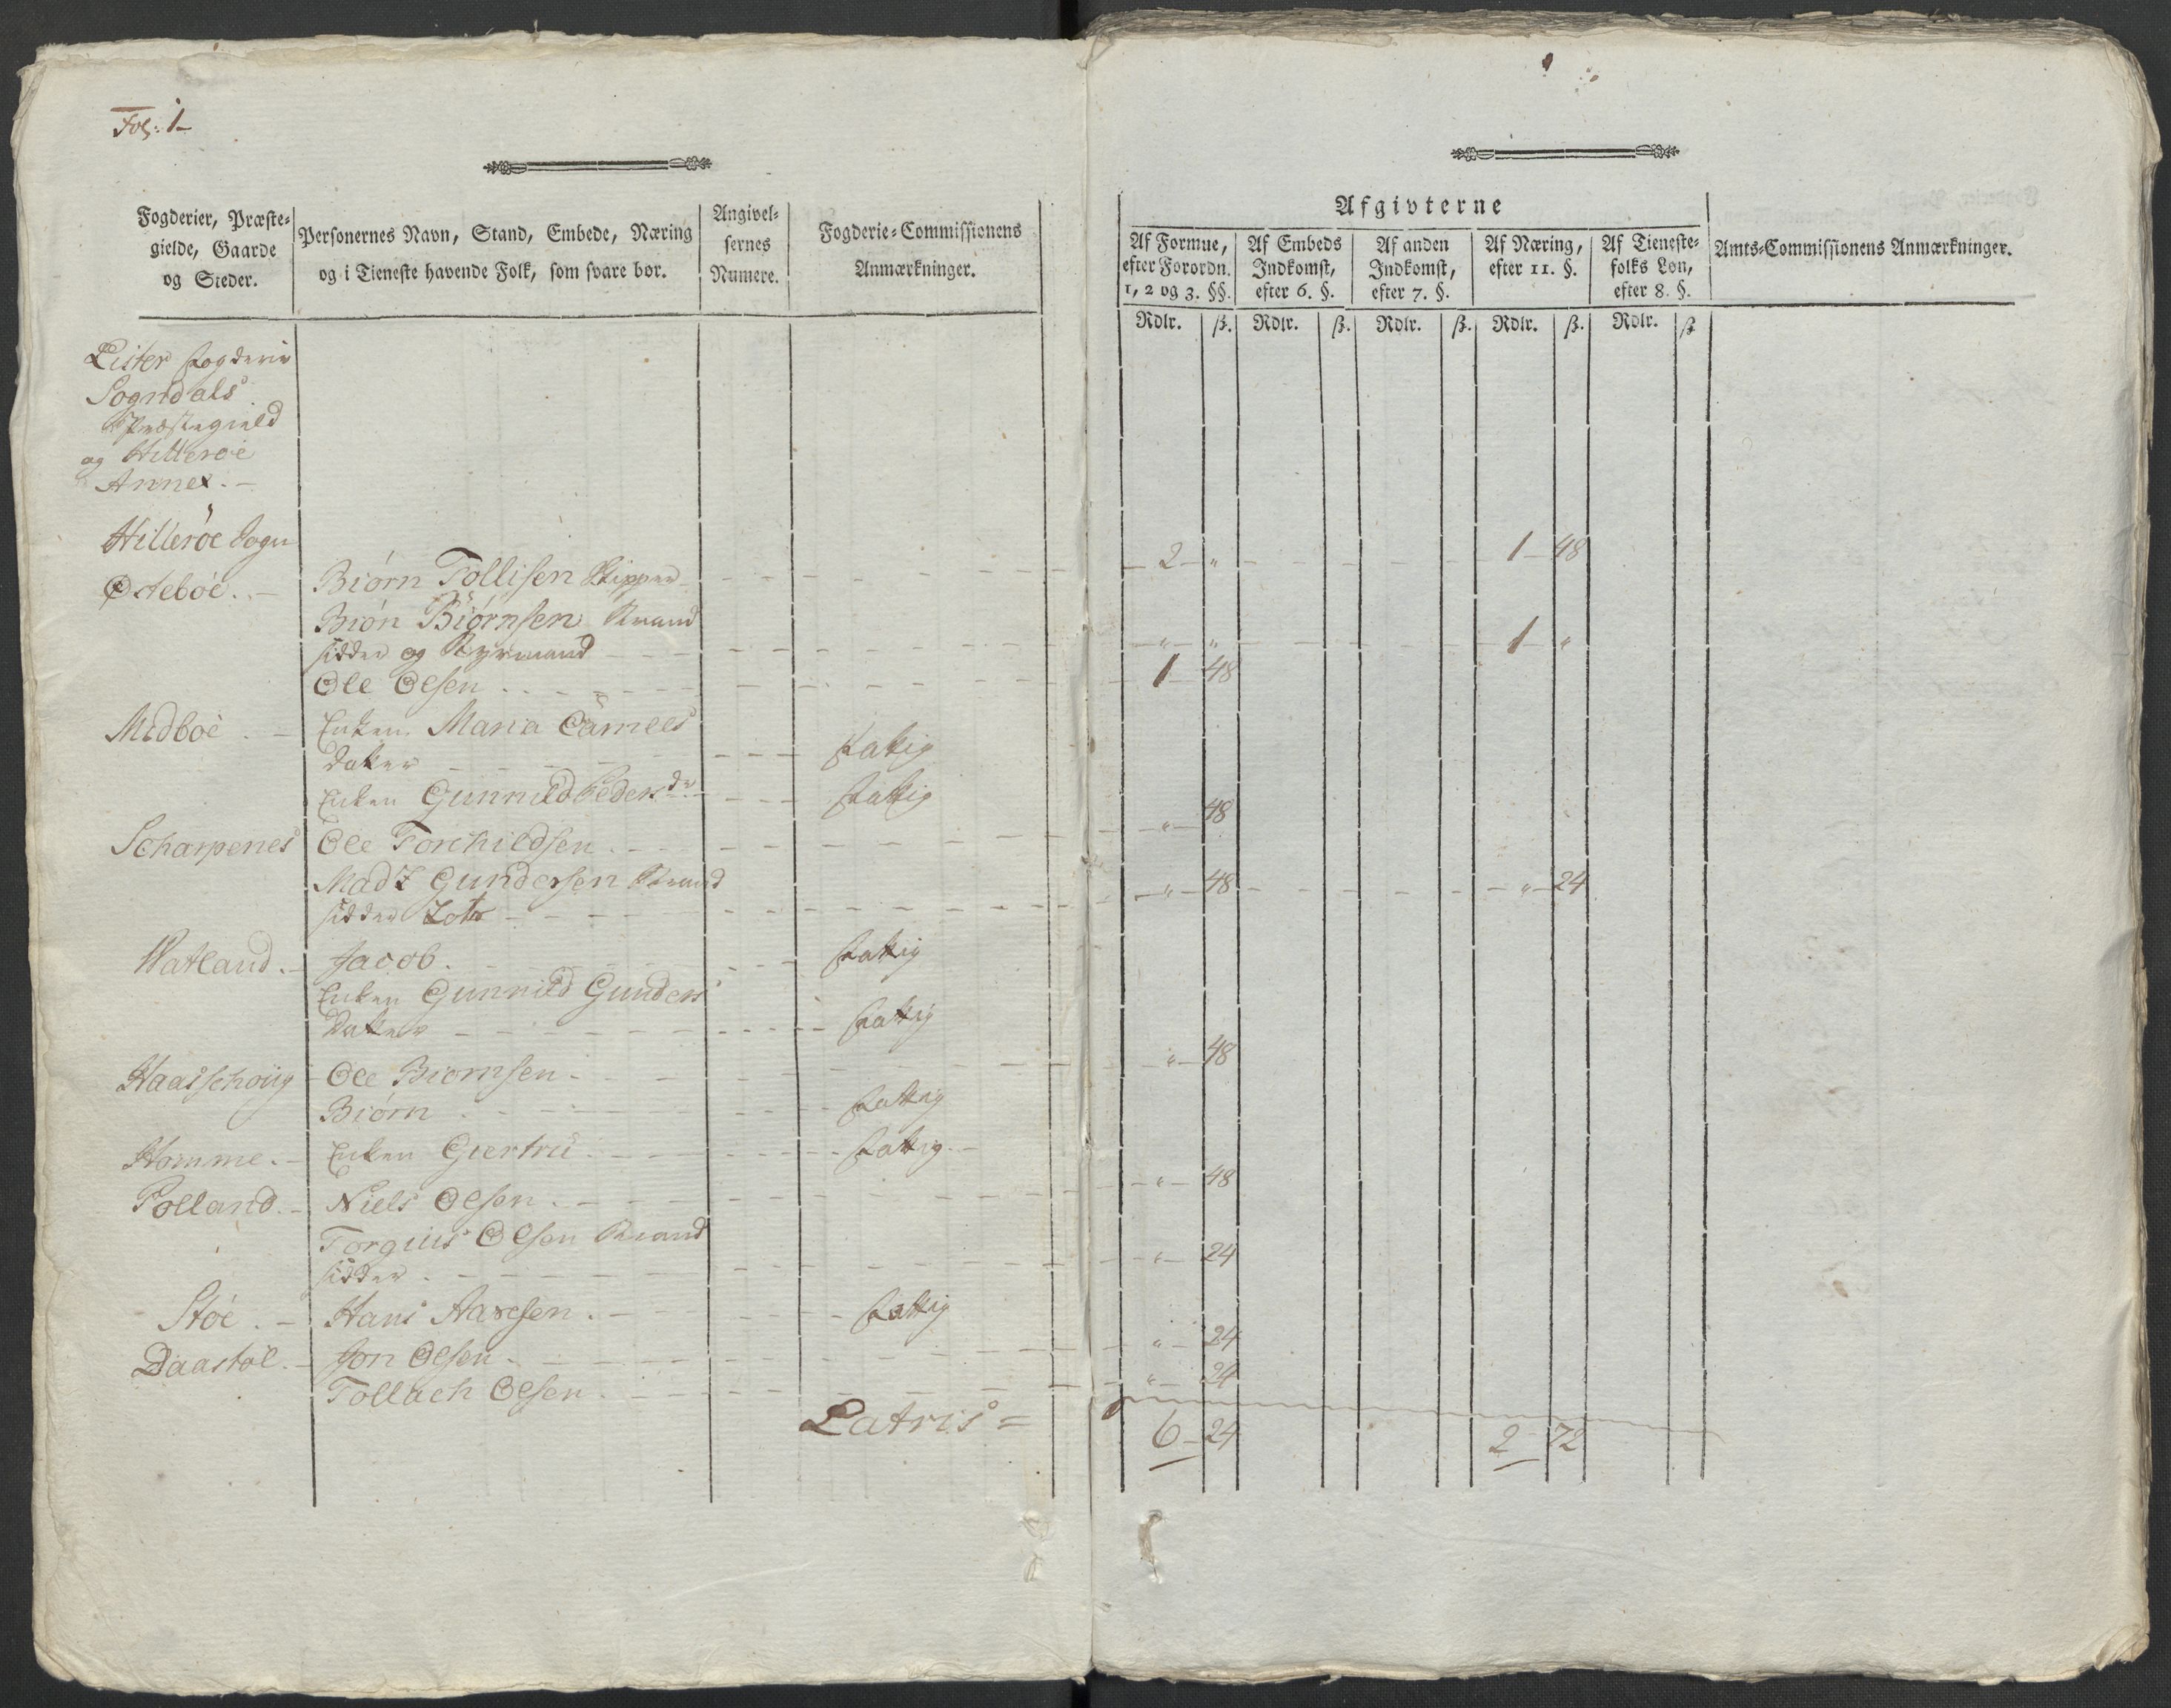 Fol: 1-
Fogderier, Præste=
gielde, Gaarde
og Steder.
Personernes Navn, Stand, Embede, Næring
og i Tieneste havende Folk, som svare bør.
Angivel=
sernes
Numere.
Fogderie=Commissionens
Anmærkninger.
Afgivterne
Af Formue,
efter Forordn.
1, 2 og 3. §§.
Af Embeds
Indkomst,
efter 6. §.
Af anden
Indkomst,
efter 7. §.
Af Næring,
efter 11. §.
Af Tieneste=
folks Løn,
efter 8. §.
Amts=Commissionens Anmærkninger.
Rdlr. ß. Rdlr. ß. Rdlr. ß. Rdlr. ß. Rdlr. ß
Lister Fogderie
Sogndals
Præstegield
og Hitterøe
Annex. -
Hitterøe Sogn
Østebøe. - Biørn Tollisen Skipper - 2 - „ - 1 - 48
Biøn Biørnsen Strand
sidder og Styrmand - „ - „ - 1 - „
Ole Olsen - 1 - 48
Midbøe - Enken Maria
datter - fattig
Enken Gunnild Peders dr - fattig
Scharpenes Ole Torchildsen - „ - 48
Madz Gundersen Strand
sidder - „ - 48 - „ - 24
Watland. - Jacob. - fattig
Enken Gunnild Gunders
datter - fattig
Haasschoug - Ole Biornsen - „ - 48
Biørn - fattig
Homme. - Enken Giertru - fattig. -
Polland. - Niels Olsen. - „ - 48
Torgius Olsen Strand
sidder. - „ - 24
Støe. - Hans Aasesen. - fattig
Daastøl. - Jon Olsen - „ - 24
Tollach Olsen. - „ - 24
Latris = 6 - 24 2 - 72